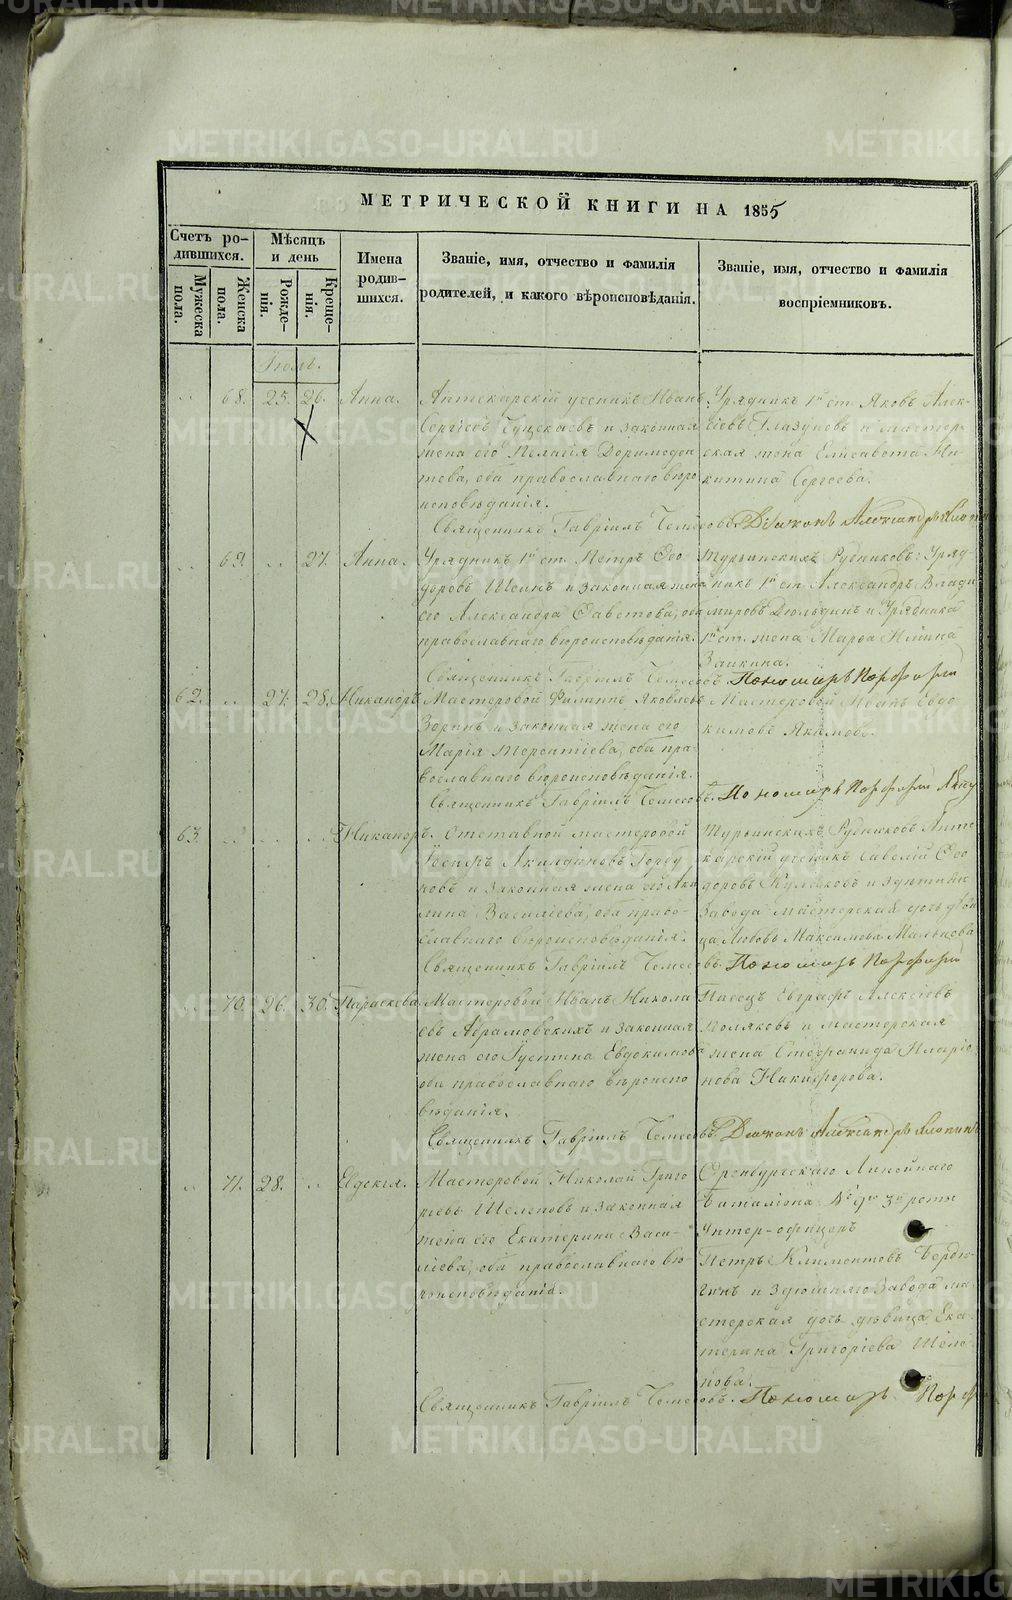 МЕТРИЧЕСКОЙ КНИГИ НА 1855
Счетъ ро-
дившихся.
Мужеска
пола.
Женска
пола.
Мѣсяцъ
и день
Рожде-
нія.
Креще-
нія.
Имена
родив-
шихся.
Званіе, имя, отчество и фамилія
родителей, и какого вѣроисповѣданія.
Званіе, имя, отчество и фамилія
воспріемниковъ.
68. 25. 26. Анна.
Аптекарскій ученикъ Иванъ
Сергіевъ и законная
жена его Пелагія
оба православнаго вѣро
исповѣданія.
Священникъ Гавріилъ
Урядникъ 1й ст. Яковъ Алек-
сіевъ Глазуновъ и мастер-
ская жена Елисавета Ни-
китина Сергеева.
Діаконъ Александръ
69. 27. Анна.
Урядникъ 1й ст. Петръ Ѳео
доровъ и законная жена
его Александра оба
православнаго вѣроисповѣданія.
Священникъ Гавріилъ
Турьинскихъ Рудниковъ Уряд-
никъ 1й ст. Александръ Влади
міровъ и Урядника
1й ст. жена Марѳа
Заикина.
Пономарь Порфирій
62. 27. 28. Никаноръ.
Мастеровой Филиппъ Яковлевъ
Зоринъ и законная жена его
Марія Терентіева, оба пра-
вославнаго вѣроисповѣданія.
Священникъ Гавріилъ
Мастеровой Иванъ Евдо
кимовъ Якимовъ.
Пономарь Порфирій
63. Никаноръ.
Отставной мастеровой
Іосифъ Акиндиновъ
и законная жена его Аки
лина Василіева, оба право-
славнаго вѣроисповѣданія.
Священникъ Гавріилъ
Турьинскихъ Рудниковъ Апте
карскій ученикъ Савелій Ѳео
доровъ Куликовъ и здѣшняго
Завода мастерская дочь дѣви
ца Любовь Максимова Мальцова
Пономарь Порфирій
70. 26. 30. Параскева.
Мастеровой Иванъ Никола
евъ Абрамовскихъ и законная
жена его Іустина Евдокимова
оба православнаго вѣроиспо
вѣданія.
Священникъ Гавріилъ
Писецъ Евграфъ Алексіевъ
Поляковъ и мастерская
жена Стефанида Иларіо
нова Никифорова.
Діаконъ Александръ
71. 28. Евдокія.
Мастеровой Николай Григо
ріевъ Шелеповъ и законная
жена его Екатерина Васи-
ліева, оба православнаго вѣ
роисповѣданія.
Священникъ Гавріилъ
Оренбургскаго Линейнаго
Баталіона 3й роты
Унтер-офицеръ
Петръ Климентовъ
и здѣшняго Завода ма
стерская дочь дѣвица Ека
терина Григоріева Шеле
пова.
Пономарь